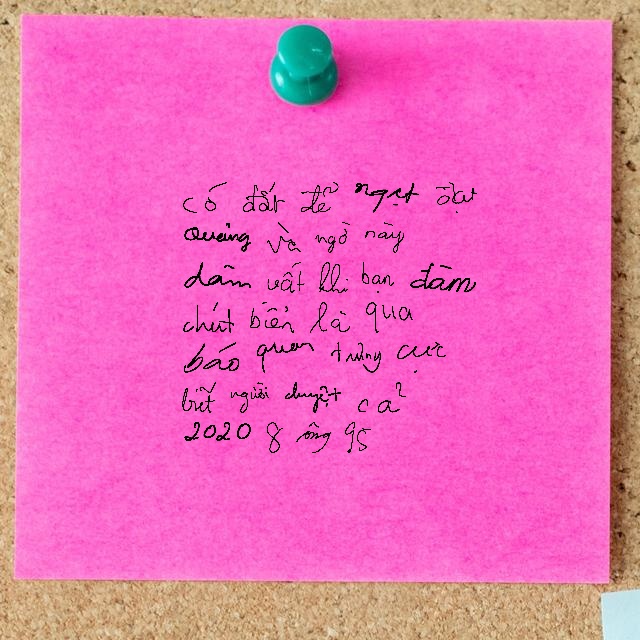 có đất để ngạt
quảng và ngờ này
dâm vất khi bạn đàm
chút biển là qua
báo quan trưng cực
biết người duyệt cả
2020 8 ông 95